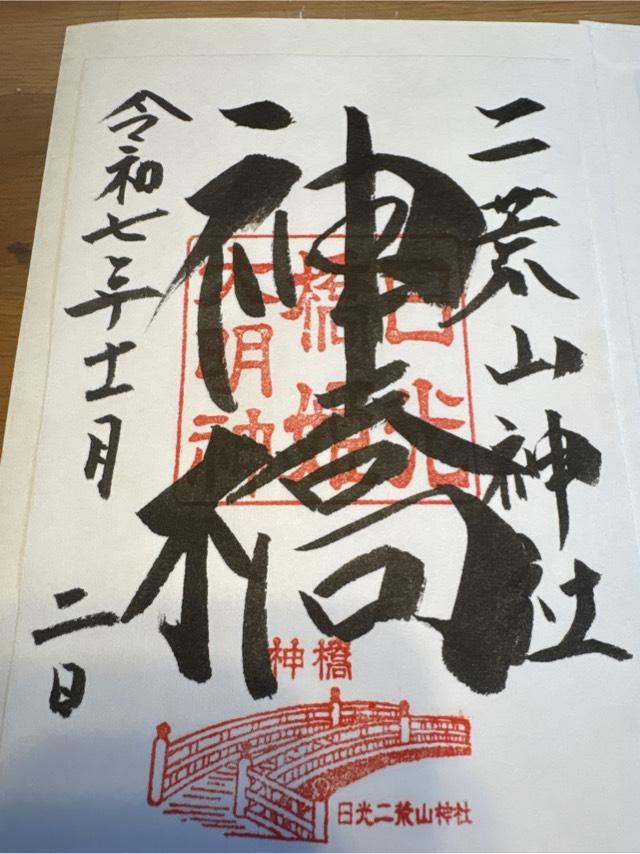 二荒山神社
神橋
日光
橋姫
大明神
令和七年十一月
二日
神橋
日光二荒山神社